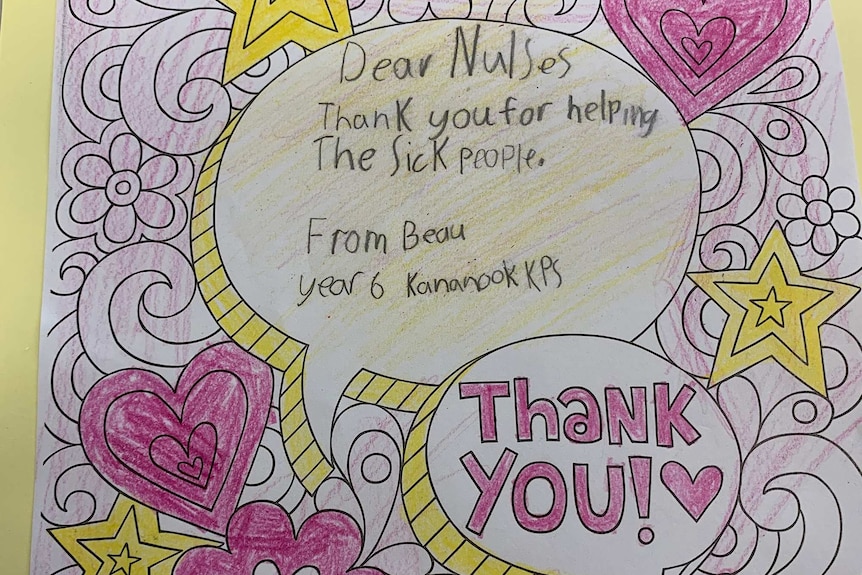 Dear Nulses
Thank you for helping
The Sick people.
From Beau
year 6 Kananook KPS
Thank
You!